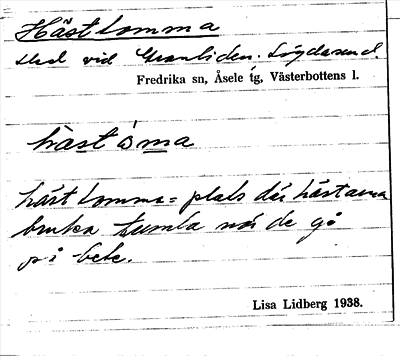 Hästtomma
vid Granliden. Lögdasund.
Fredrika sn, Åsele tg, Västerbottens l.
hästoma
hästtomma = plats där hästarna
bruka tumla när de gå
på bete.
Lisa Lidberg 1938.